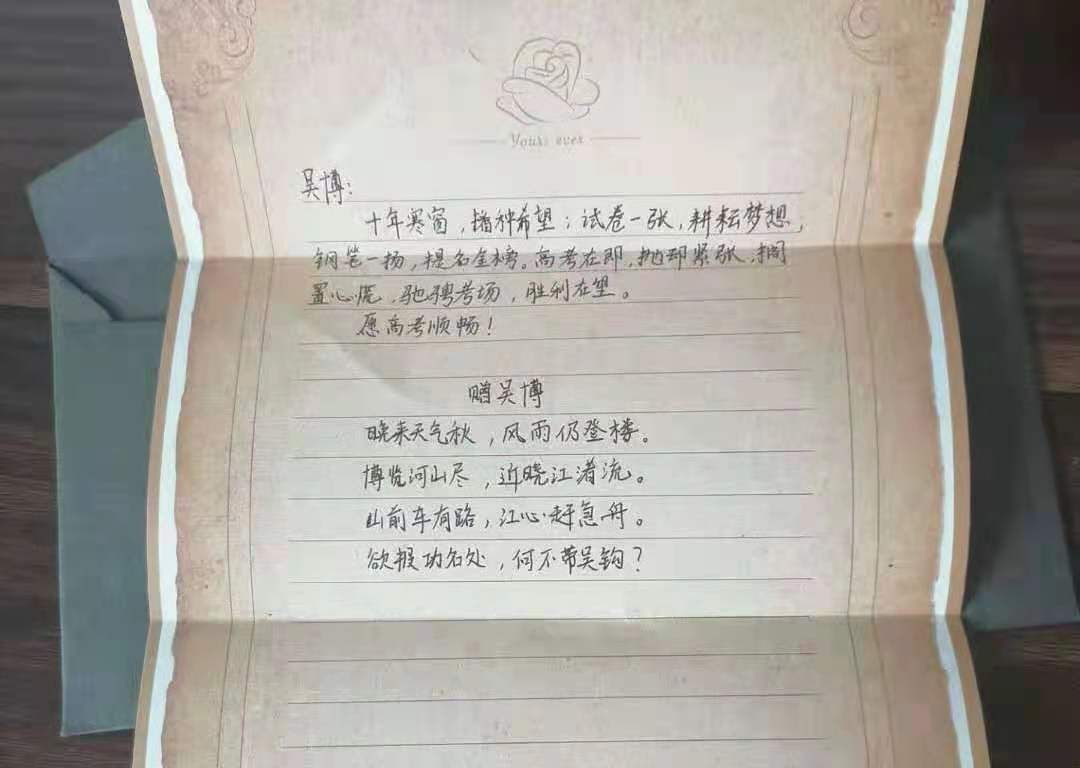 Yours ever
吴博：
十年寒窗，播种希望；试卷一张，耕耘梦想，
钢笔一扬，提名金榜。高考在即，抛却紧张，搁
置心慌，驰骋考场，胜利在望。
愿高考顺畅！
赠吴博
晚来天气秋，风雨仍登楼。
博览河山尽，近晓江渚流。
山前车有路，江心赶急舟。
欲报功名处，何不带吴钩？